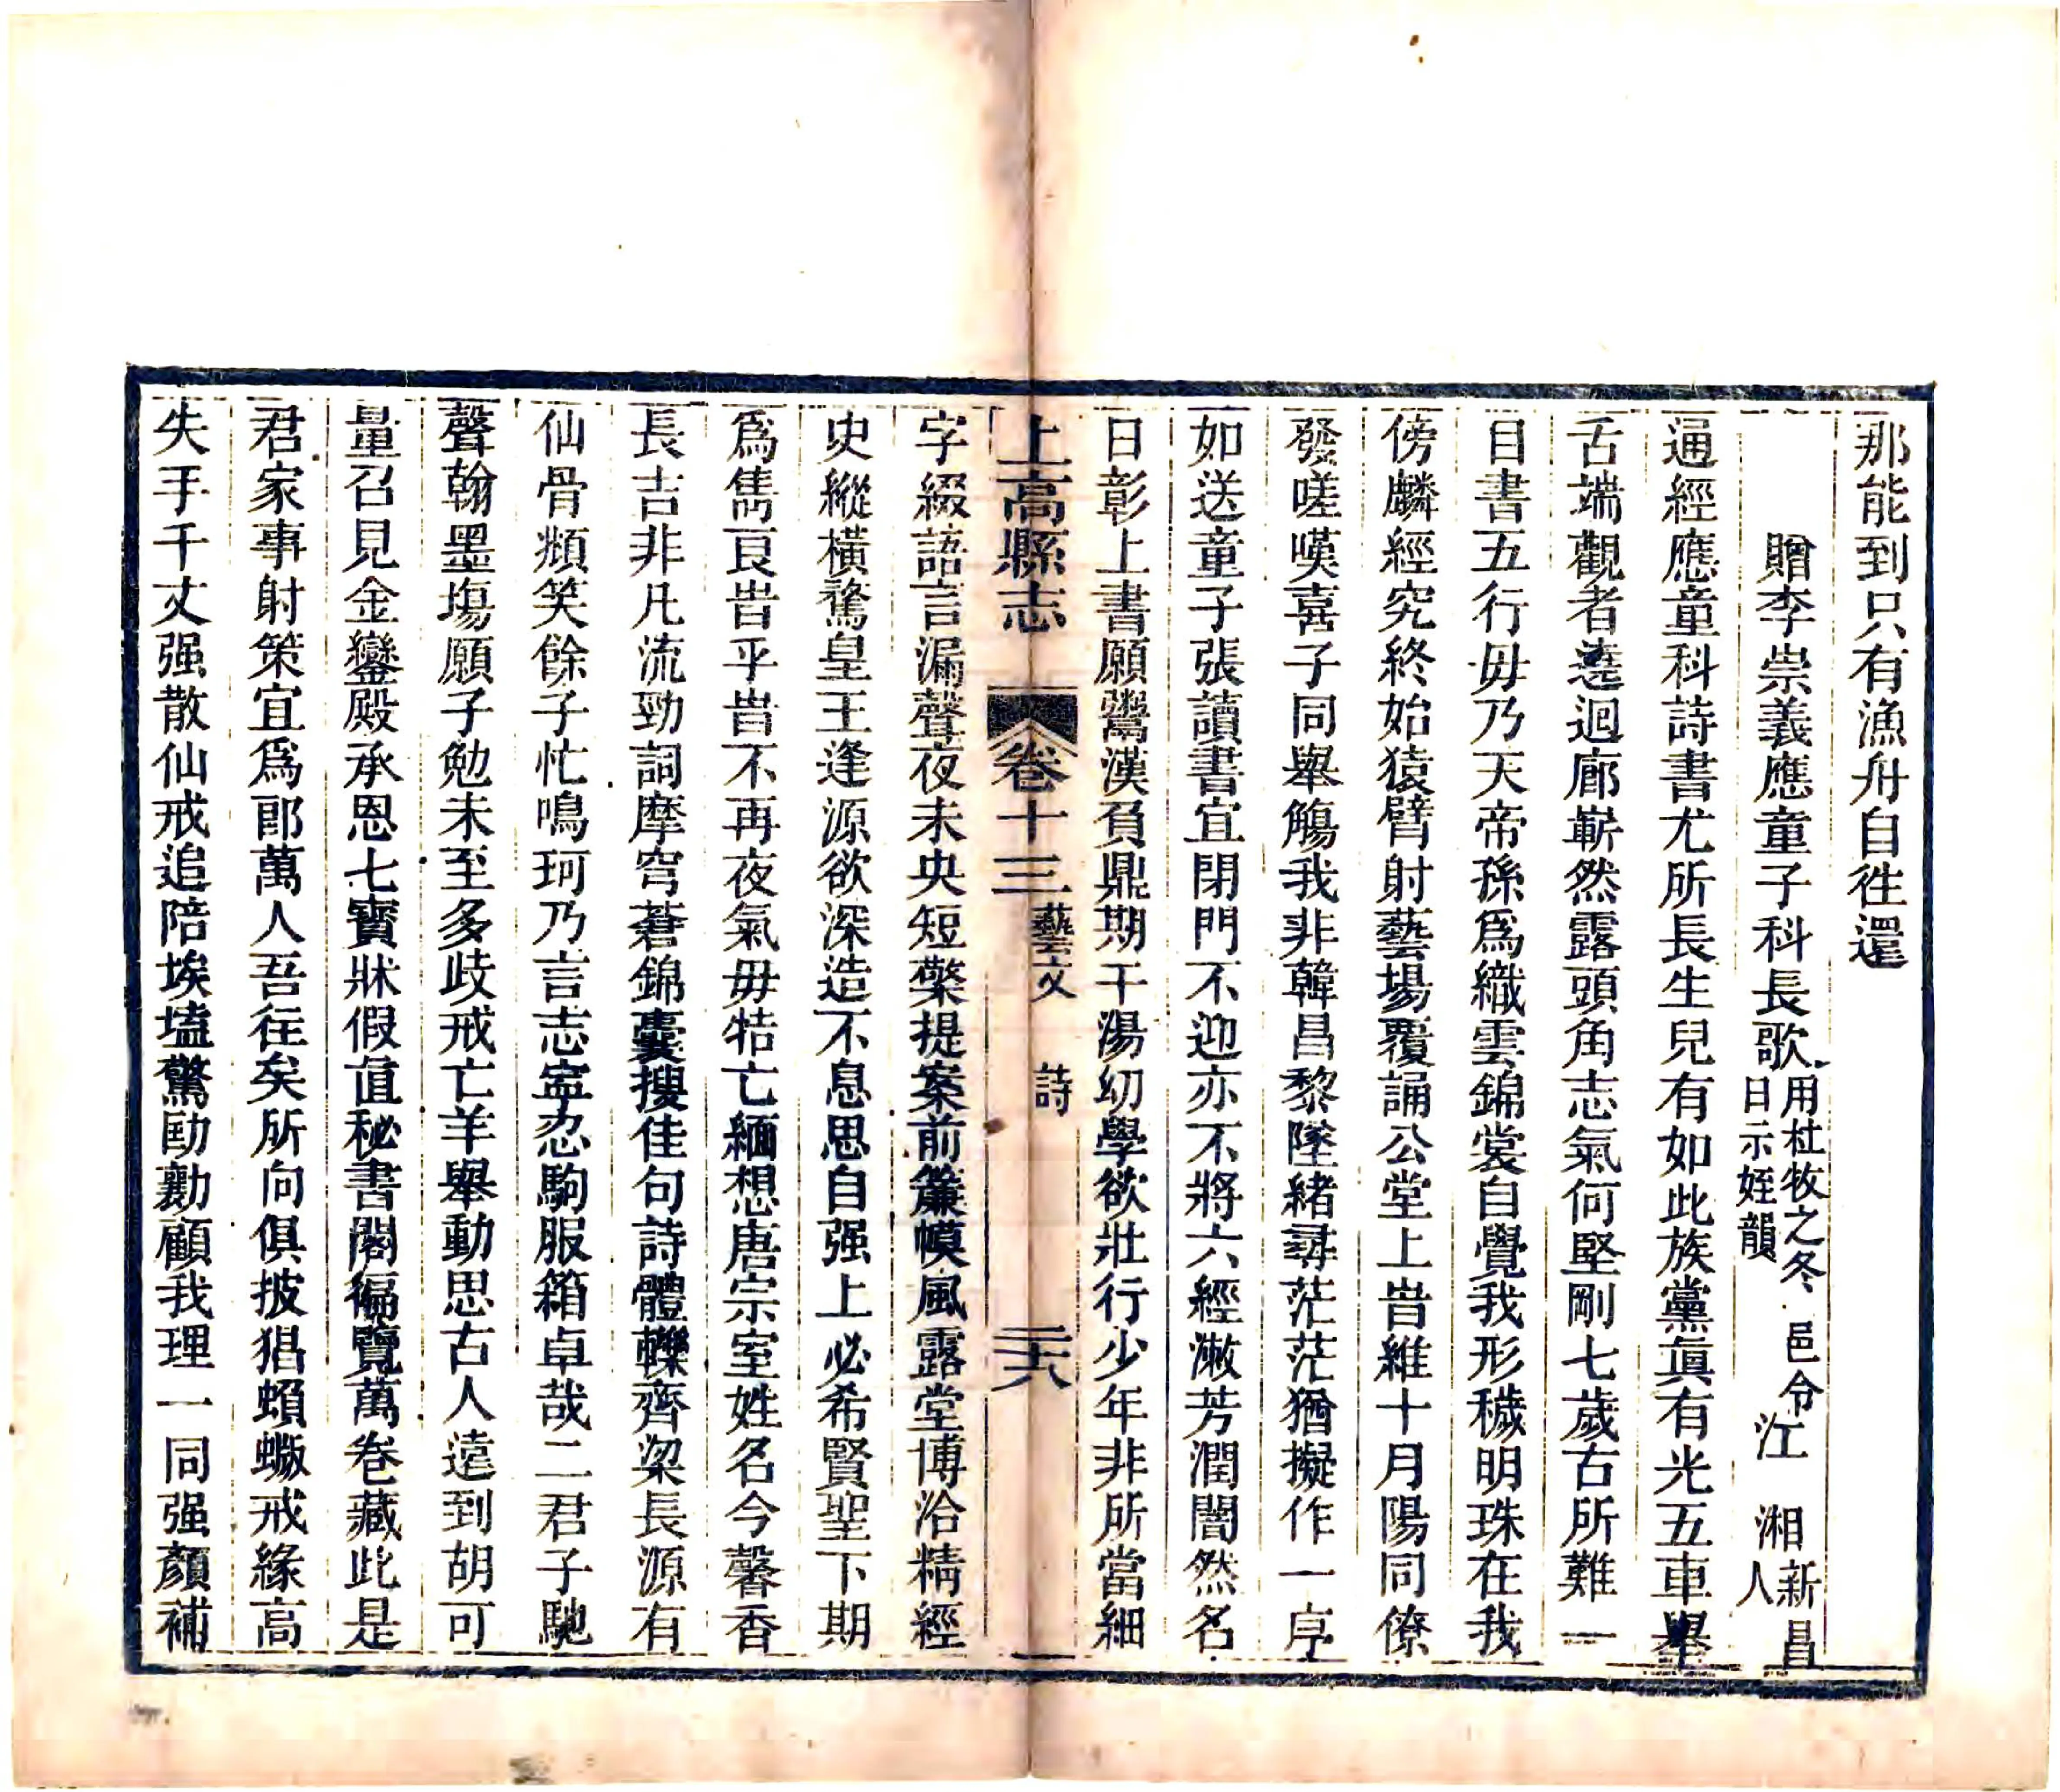 那能到只有漁舟自徃還
贈李崇義應童子科長歌用杜牧之冬日示姪韻 邑令江湘新昌人
通經應童科詩書尤所長生兒有如此族黨眞有光五車舉
舌端觀者遶迴廊嶄然露頭角志氣何堅剛七歲古所難一
目書五行毋乃天帝孫爲織雲錦裳自覺我形穢明珠在我
傍麟經究終始猿臂射藝場覆誦公堂上旹維十月陽同僚
發嗟嘆喜子同舉觴我非韓昌黎墜緒尋茫茫猶擬作一序
如送童子張讀書宜閉門不迎亦不將六經潄芳潤闇然名
日彰上書願鬻漢負鼎期干湯幼學欲壯行少年非所當細
上高縣志 卷十三 藝文 詩 三十八
字綴語言漏聲夜未央短檠提案前簾幙風露堂博洽精經
史縱橫騖皇王逢源欲深造不息思自强上必希賢聖下期
爲雋良旹乎旹不再夜氣毋牿亡緬想唐宗室姓名今馨香
長吉非凡流勁詞摩穹蒼錦囊搜佳句詩體轢齊梁長源有
仙骨頫笑餘子忙鳴珂乃言志寍忍駒服箱卓哉二君子馳
聲翰墨塲願子勉未至多歧戒亡羊舉動思古人遠到胡可
量召見金鑾殿承恩七寶牀假直秘書閣徧覽萬卷藏此是
君家事射策宜爲郎萬人吾往矣所向俱披猖蝜蝂戒緣高
失手千丈强散仙戒追陪埃壒驚劻勷顧我理一同强顏補